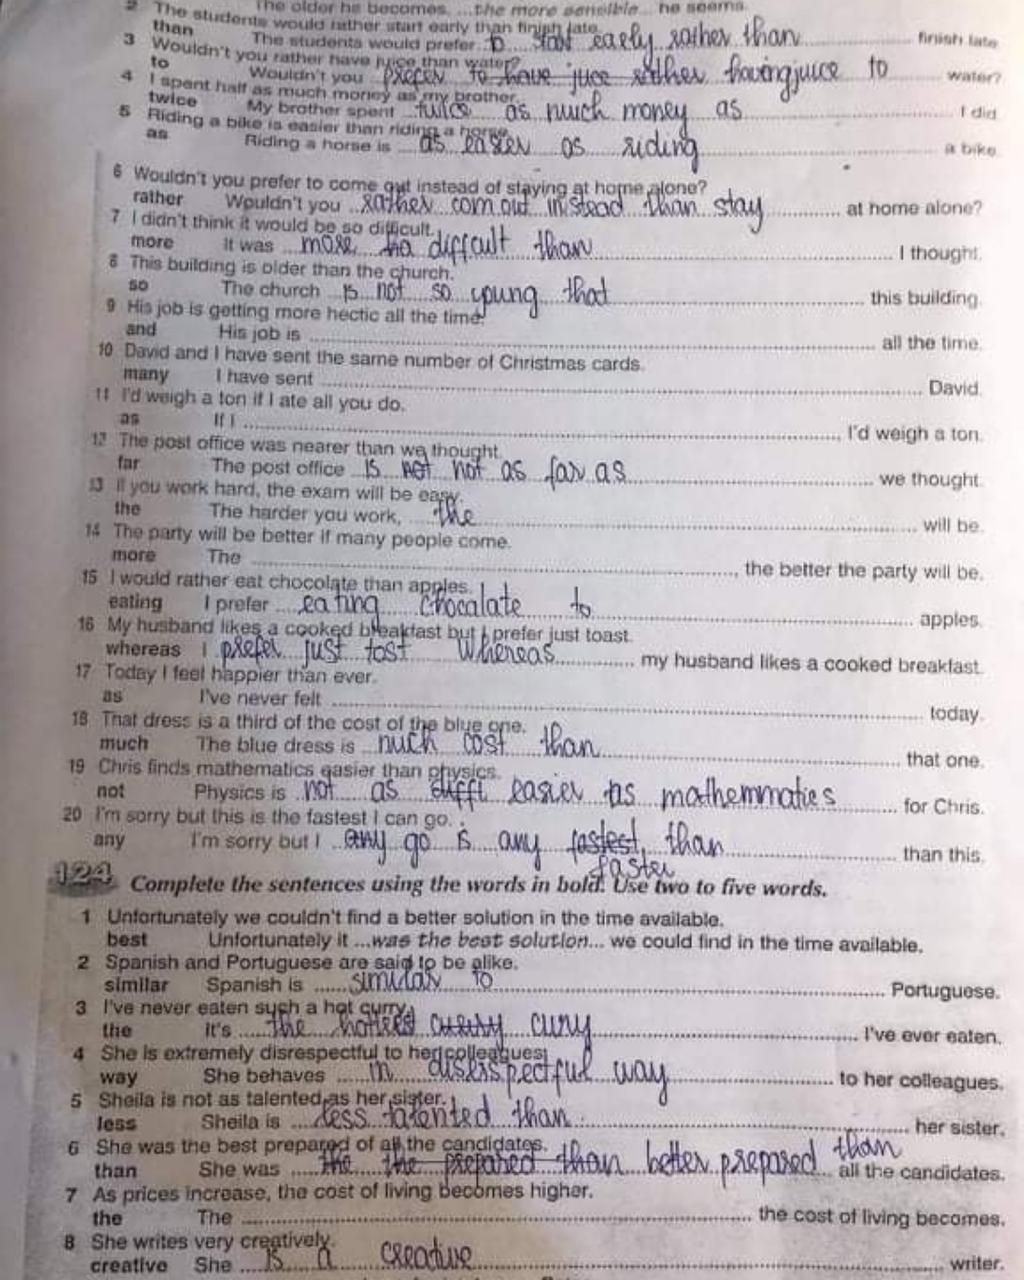 The older he becomes, ...the more sensible... he seems.
2 The students would rather start early than finish late.
than The students would prefer to start early rather than finish late
3 Wouldn't you rather have juice than water?
to Wouldn't you prefer to have juce rather having juice to water?
4 I spent half as much money as my brother.
twice My brother spent twice as much money as I did
5 Riding a bike is easier than riding a horse.
as Riding a horse is as easier as riding a bike.
6 Wouldn't you prefer to come out instead of staying at home alone?
rather Wouldn't you rather com out instead than stay at home alone?
7 I didn't think it would be so difficult.
more It was more diffcult than I thought.
8 This building is older than the church.
so The church is not so young that this building.
9 His job is getting more hectic all the time.
and His job is all the time.
10 David and I have sent the same number of Christmas cards.
many I have sent David.
11 I'd weigh a ton if I ate all you do.
as If I , I'd weigh a ton.
12 The post office was nearer than we thought.
far The post office is not as far as we thought.
13 If you work hard, the exam will be easy.
the The harder you work, the will be.
14 The party will be better if many people come.
more The , the better the party will be.
15 I would rather eat chocolate than apples.
eating I prefer eating chocalate to apples.
16 My husband likes a cooked breakfast but I prefer just toast.
whereas I prefer just tost whereas my husband likes a cooked breakfast.
17 Today I feel happier than ever.
as I've never felt today.
18 That dress is a third of the cost of the blue one.
much The blue dress is much cost than that one.
19 Chris finds mathematics easier than physics.
not Physics is not as diffi easier as mathemmatics for Chris.
20 I'm sorry but this is the fastest I can go.
any I'm sorry but I any go is any fastest, than than this.
faster
124 Complete the sentences using the words in bold. Use two to five words.
1 Unfortunately we couldn't find a better solution in the time available.
best Unfortunately it ...was the best solution... we could find in the time available.
2 Spanish and Portuguese are said to be alike.
similar Spanish is similar to Portuguese.
3 I've never eaten such a hot curry.
the It's the curry I've ever eaten.
4 She is extremely disrespectful to her colleagues.
way She behaves in way to her colleagues.
5 Sheila is not as talented as her sister.
less Sheila is less talented than her sister.
6 She was the best prepared of all the candidates.
than She was the the prepared than better prepared than all the candidates.
7 As prices increase, the cost of living becomes higher.
the The the cost of living becomes.
8 She writes very creatively.
creative She is a creative writer.